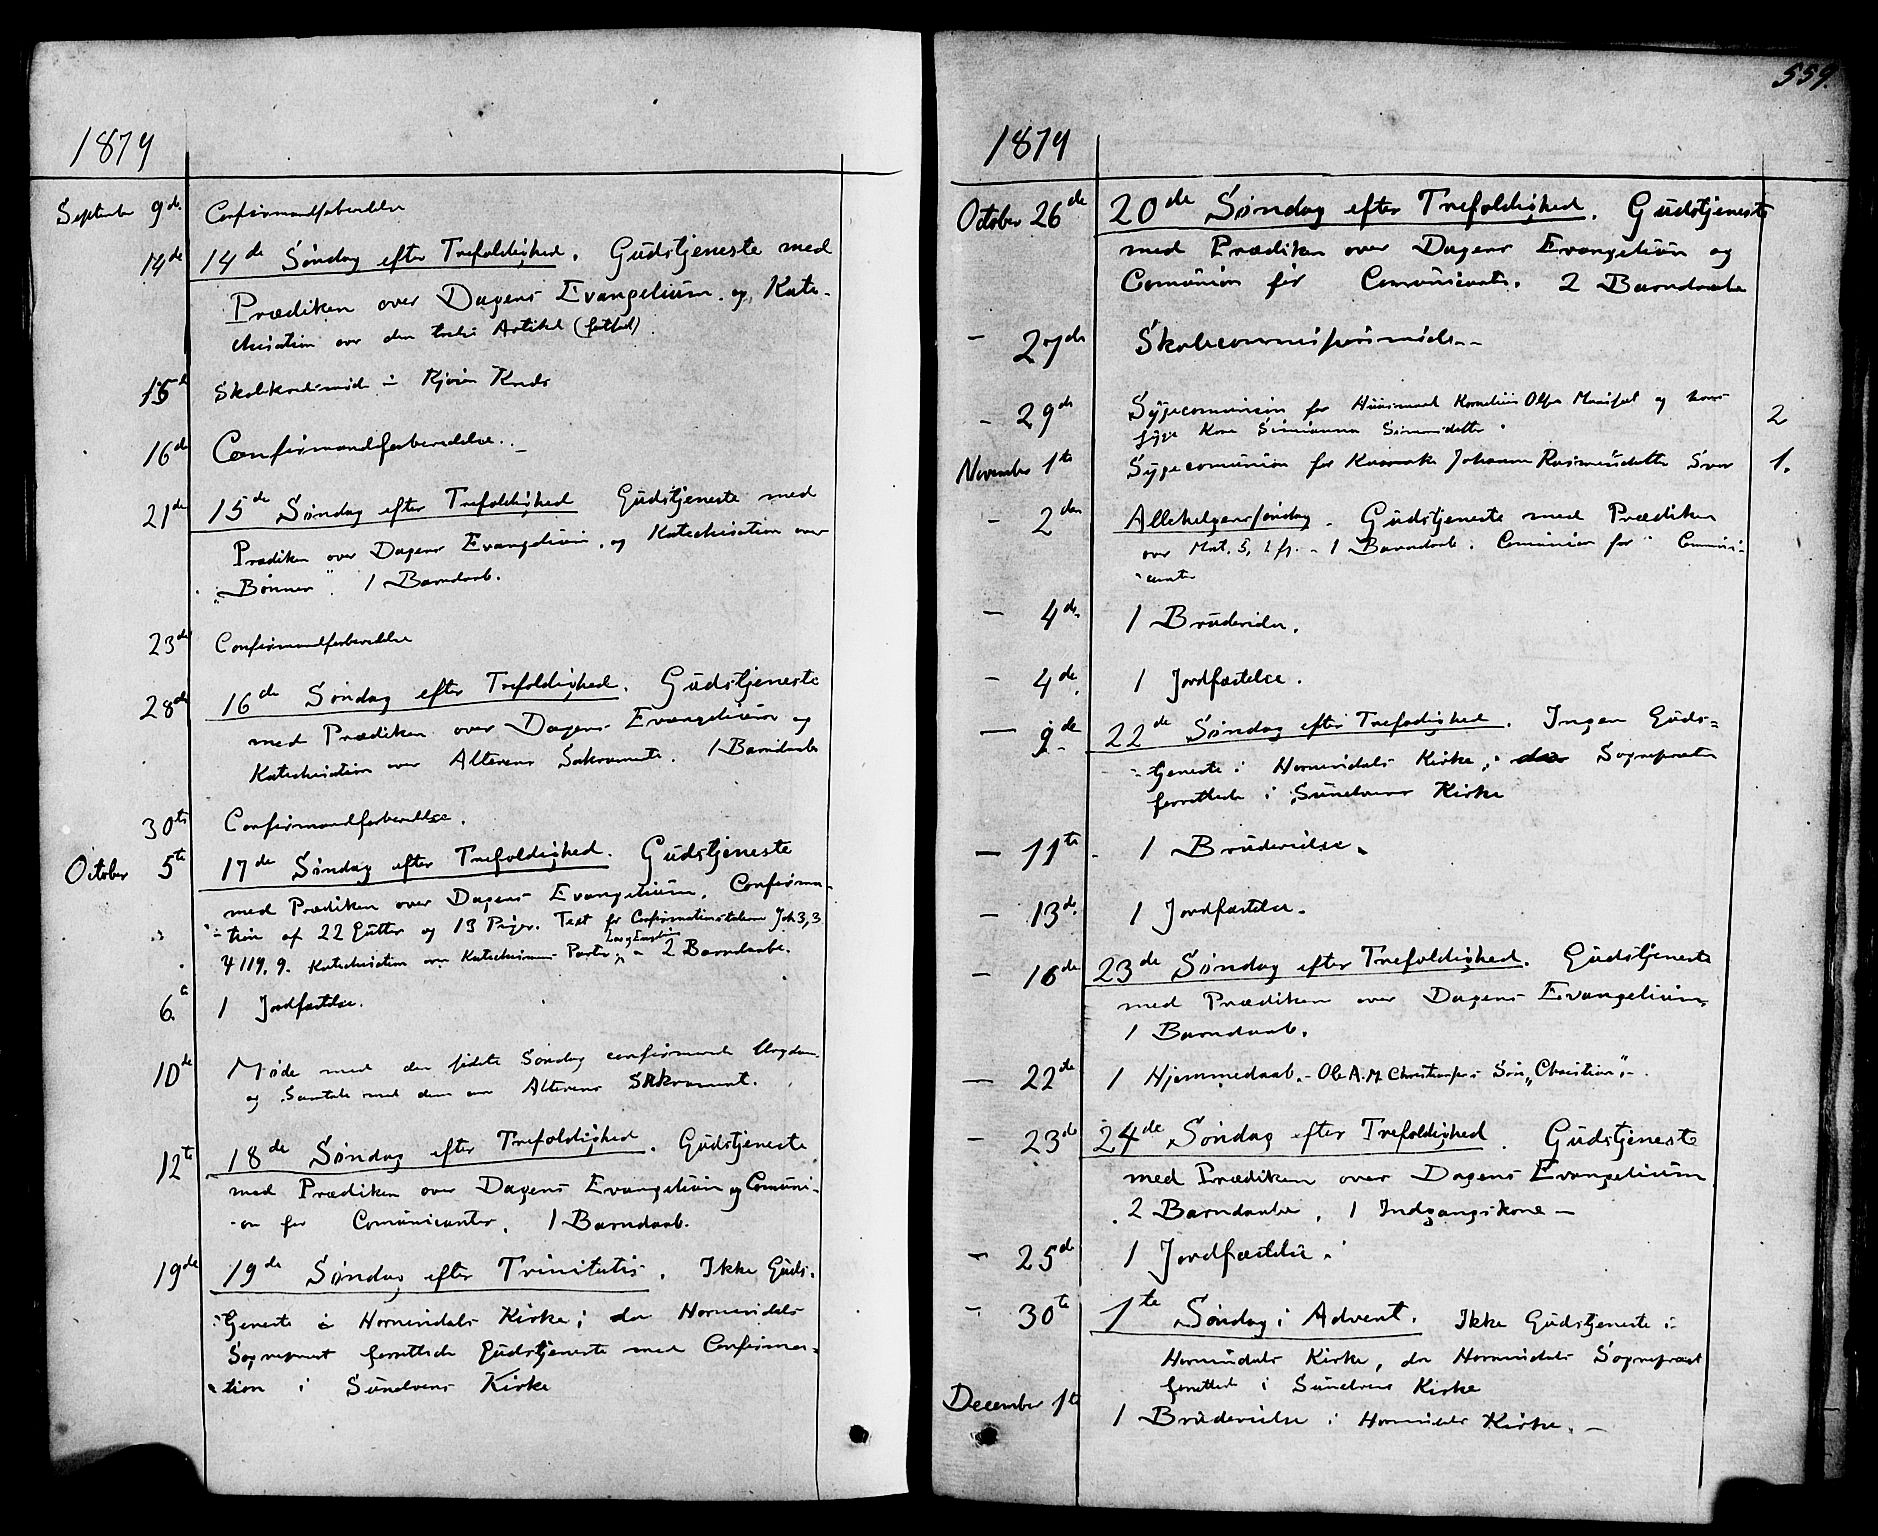 1879
September 9de Confirmandforberedelse
14de 14de Søndag efter Trefoldighed. Gudstjeneste med
Prædiken over Dagens Evangelium og Kate-
chisation over den tredie Artikel
15de Skolekredsmøde i Kjøsen Kreds
16de Confirmandforberedelse.
21de 15de Søndag efter Trefoldighed Gudstjeneste med
Prædiken over Dagens Evangelium, og Katechisation over
"Bønnen". 1 Barndaab.
23de Confirmandforberedelse
28de 16de Søndag efter Trefoldighed. Gudstjeneste
med Prædiken over Dagens Evangelium og
Katechisation over Alterens Sakramente. 1 Barndaab
30te Confirmandforberedelse.
October 5te 17de Søndag efter Trefoldighed. Gudstjeneste
med Prædiken over Dagens Evangelium. Confirma-
-tion af 22 Gutter og 13 Piger. Text for Confirmationstalen Joh 3,3
119, 9. Katechisation over Katechismus Parter 2 Barndaabe.
6te 1 Jordfæstelse.
10de Møde med den sidste Søndag confirmerede Ungdom
og Samtale med dem om Alterens Sakrament.
12te 18de Søndag efter Trefoldighed. Gudstjeneste
med Prædiken over Dagens Evangelium og Comuni-
-on for Comunicanter. 1 Barndaab.
19de 19de Søndag efter Trinitatis. Ikke Guds-
-tjeneste i Hornindals Kirke; da Hornindals
Sognepræst forrettede Gudstjeneste med Confirma-
-tion i Sundvens Kirke
559.
1879
October 26de 20de Søndag efter Trefoldighed. Gudstjeneste
med Prædiken over Dagens Evangelium og
Comunion for Comunicanter. 2 Barndaabe
- 27de Skolecommissionsmøde.-
- 29de Sygecomunion for Huusmand Kornelius Olsen og hans
syge Kone Simianna Simonsdatter. 2
November 1te Sygecomunion for Johanne Rasmusdatter 1.
- 2den Allehelgenssøndag. Gudstjeneste med Prædiken
over Mat. 5, 1 fg. - 1 Barndaab. Comunion for " Comuni-
-canter
- 4de 1 Brudevielse.
- 4de 1 Jordfæstelse.
- 9de 22de Søndag efter Trefodighed. Ingen Guds-
-tjeneste i Hornindals Kirke, da Sognepræsten
forrettede i Sundvens Kirke
- 11te 1 Brudevielse.
- 13de 1 Jordfæstelse.
- 16de 23de Søndag efter Trefoldighed. Gudstjeneste
med Prædiken over Dagens Evangelium.
1 Barndaab.
- 22de 1 Hjemmedaab. - Ole A. M. Søn "Christian".-
- 23de 24de Søndag efter Trefoldighed. Gudstjeneste
med Prædiken over Dagens Evangelium
2 Barndaabe, 1 Indgangskone -
- 25de 1 Jordfæstelse.
- 30te 1te Søndag i Advent. Ikke Gudstjeneste i
Hornindals Kirke, da Hornindals Sognepræst
forrettede i Sundvens Kirke
December 1te 1 Brudevielse i Hornindals Kirke. -